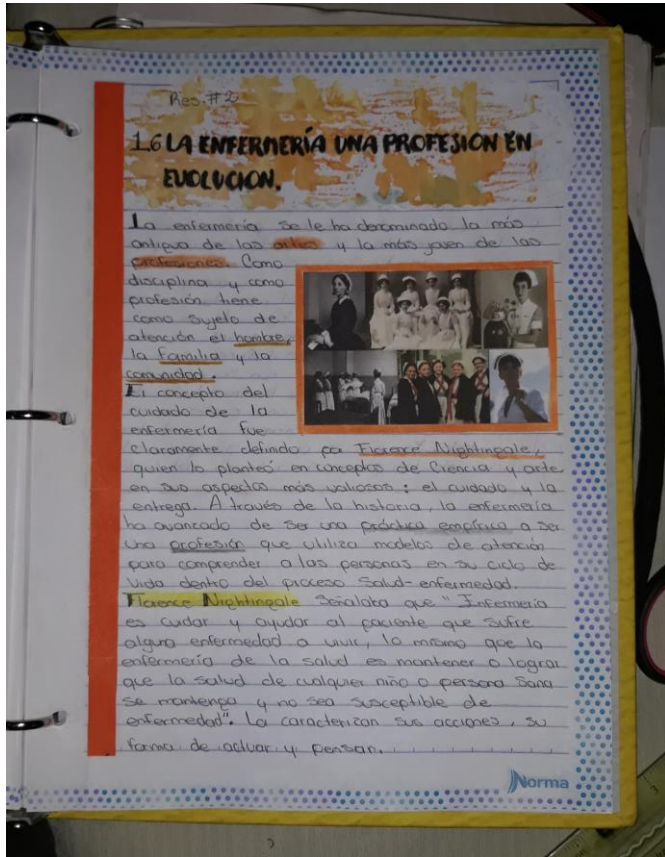 Res. #2
1.6 LA ENFERMERÍA UNA PROFESION EN
EVOLUCION.
La enfermería se le ha denominado la más
antigua de las artes y la más joven de las
profesiones. Como
disciplina y como
profesión tiene
como sujeto de
atención el hombre,
la familia y la
comunidad.
El concepto del
cuidado de la
enfermería fue
claramente definido por Florence Nightingale,
quien lo planteó en conceptos de Ciencia y arte
en sus aspectos más valiosos: el cuidado y la
entrega. A través de la historia, la enfermería
ha avanzado de ser una práctica empírica a ser
una profesión que utiliza modelos de atención
para comprender a las personas en su ciclo de
vida dentro del proceso Salud-enfermedad.
Florence Nightingale Señalaba que "Enfermería
es cuidar y ayudar al paciente que sufre
alguna enfermedad a vivir, lo mismo que la
enfermería de la salud es mantener o lograr
que la salud de cualquier niño o persona Sana
se mantenga y no sea susceptible de
enfermedad". La caracterizan sus acciones, su
forma de actuar y pensar.
Norma